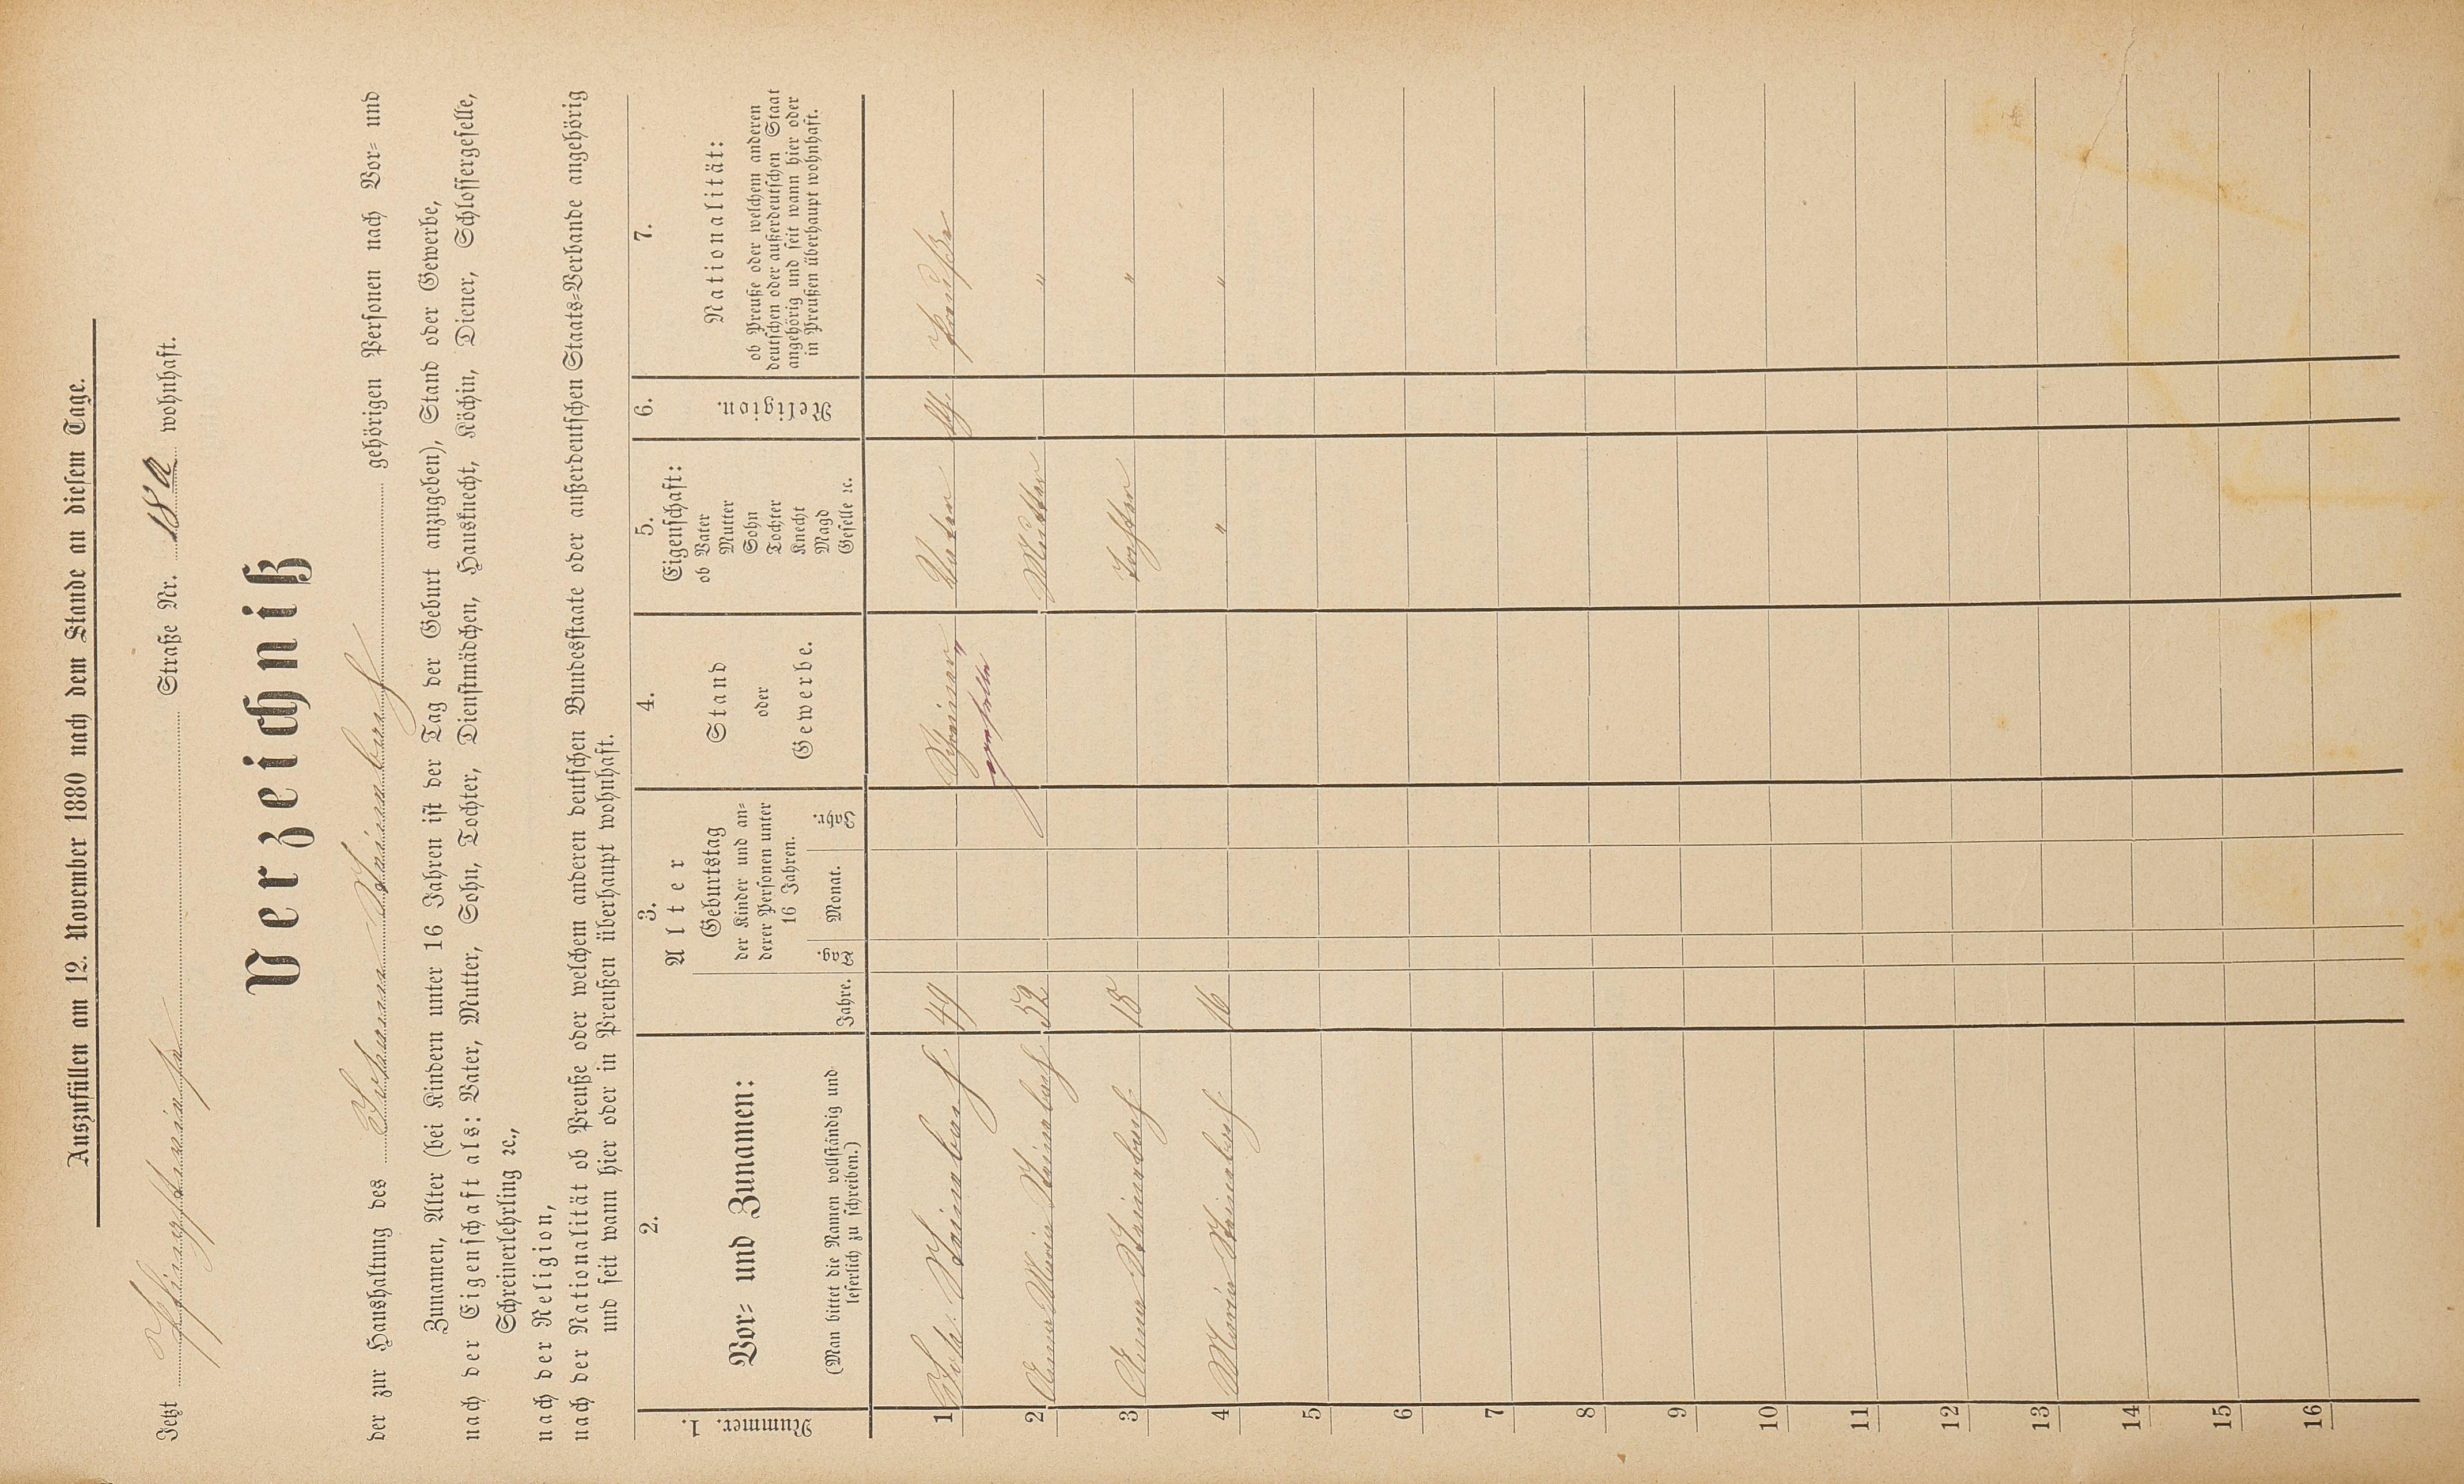 Auszufüllen am 12. November 1880 nach dem Stande an diesem Tage.
Jetzt Straße Nr. 18a wohnhaft.
Verzeichniß
der zur Haushaltung des Johann Steinbach gehörigen Personen nach Vor- und
Zunamen, Alter (bei Kindern unter 16 Jahren ist der Tag der Geburt anzugeben), Stand oder Gewerbe,
nach der Eigenschaft als: Vater, Mutter, Sohn, Tochter, Dienstmädchen, Hausknecht, Köchin, Diener, Schlossergeselle,
Schreinerlehrling ꝛc.,
nach der Religion,
nach der Nationalität ob Preuße oder welchem anderen deutschen Bundesstaate oder außerdeutschen Staats-Verbande angehörig
und seit wann hier oder in Preußen überhaupt wohnhaft.
1.
Nummer.
2.
Vor- und Zunamen:
(Man bittet die Namen vollständig und
leserlich zu schreiben.)
3.
Alter
Jahre.
Geburtstag
der Kinder und an-
derer Personen unter
16 Jahren.
Tag.
Monat.
Jahr.
4.
Stand
oder
Gewerbe.
5.
Eigenschaft:
ob Vater
Mutter
Sohn
Tochter
Knecht
Magd
Geselle ꝛc.
6.
Religion.
7.
Nationalität:
ob Preuße oder welchem anderen
deutschen oder außerdeutschen Staat
angehörig und seit wann hier oder
in Preußen überhaupt wohnhaft.
1 Joh. Steinbach 49 Schreiner Vater Preuße
geselle
2 Anna Maria Steinbach 52 Mutter "
3 Anna Steinbach 18 Tochter "
4 Maria Steinbach 16 " "
5
6
7
8
9
10
11
12
13
14
15
16